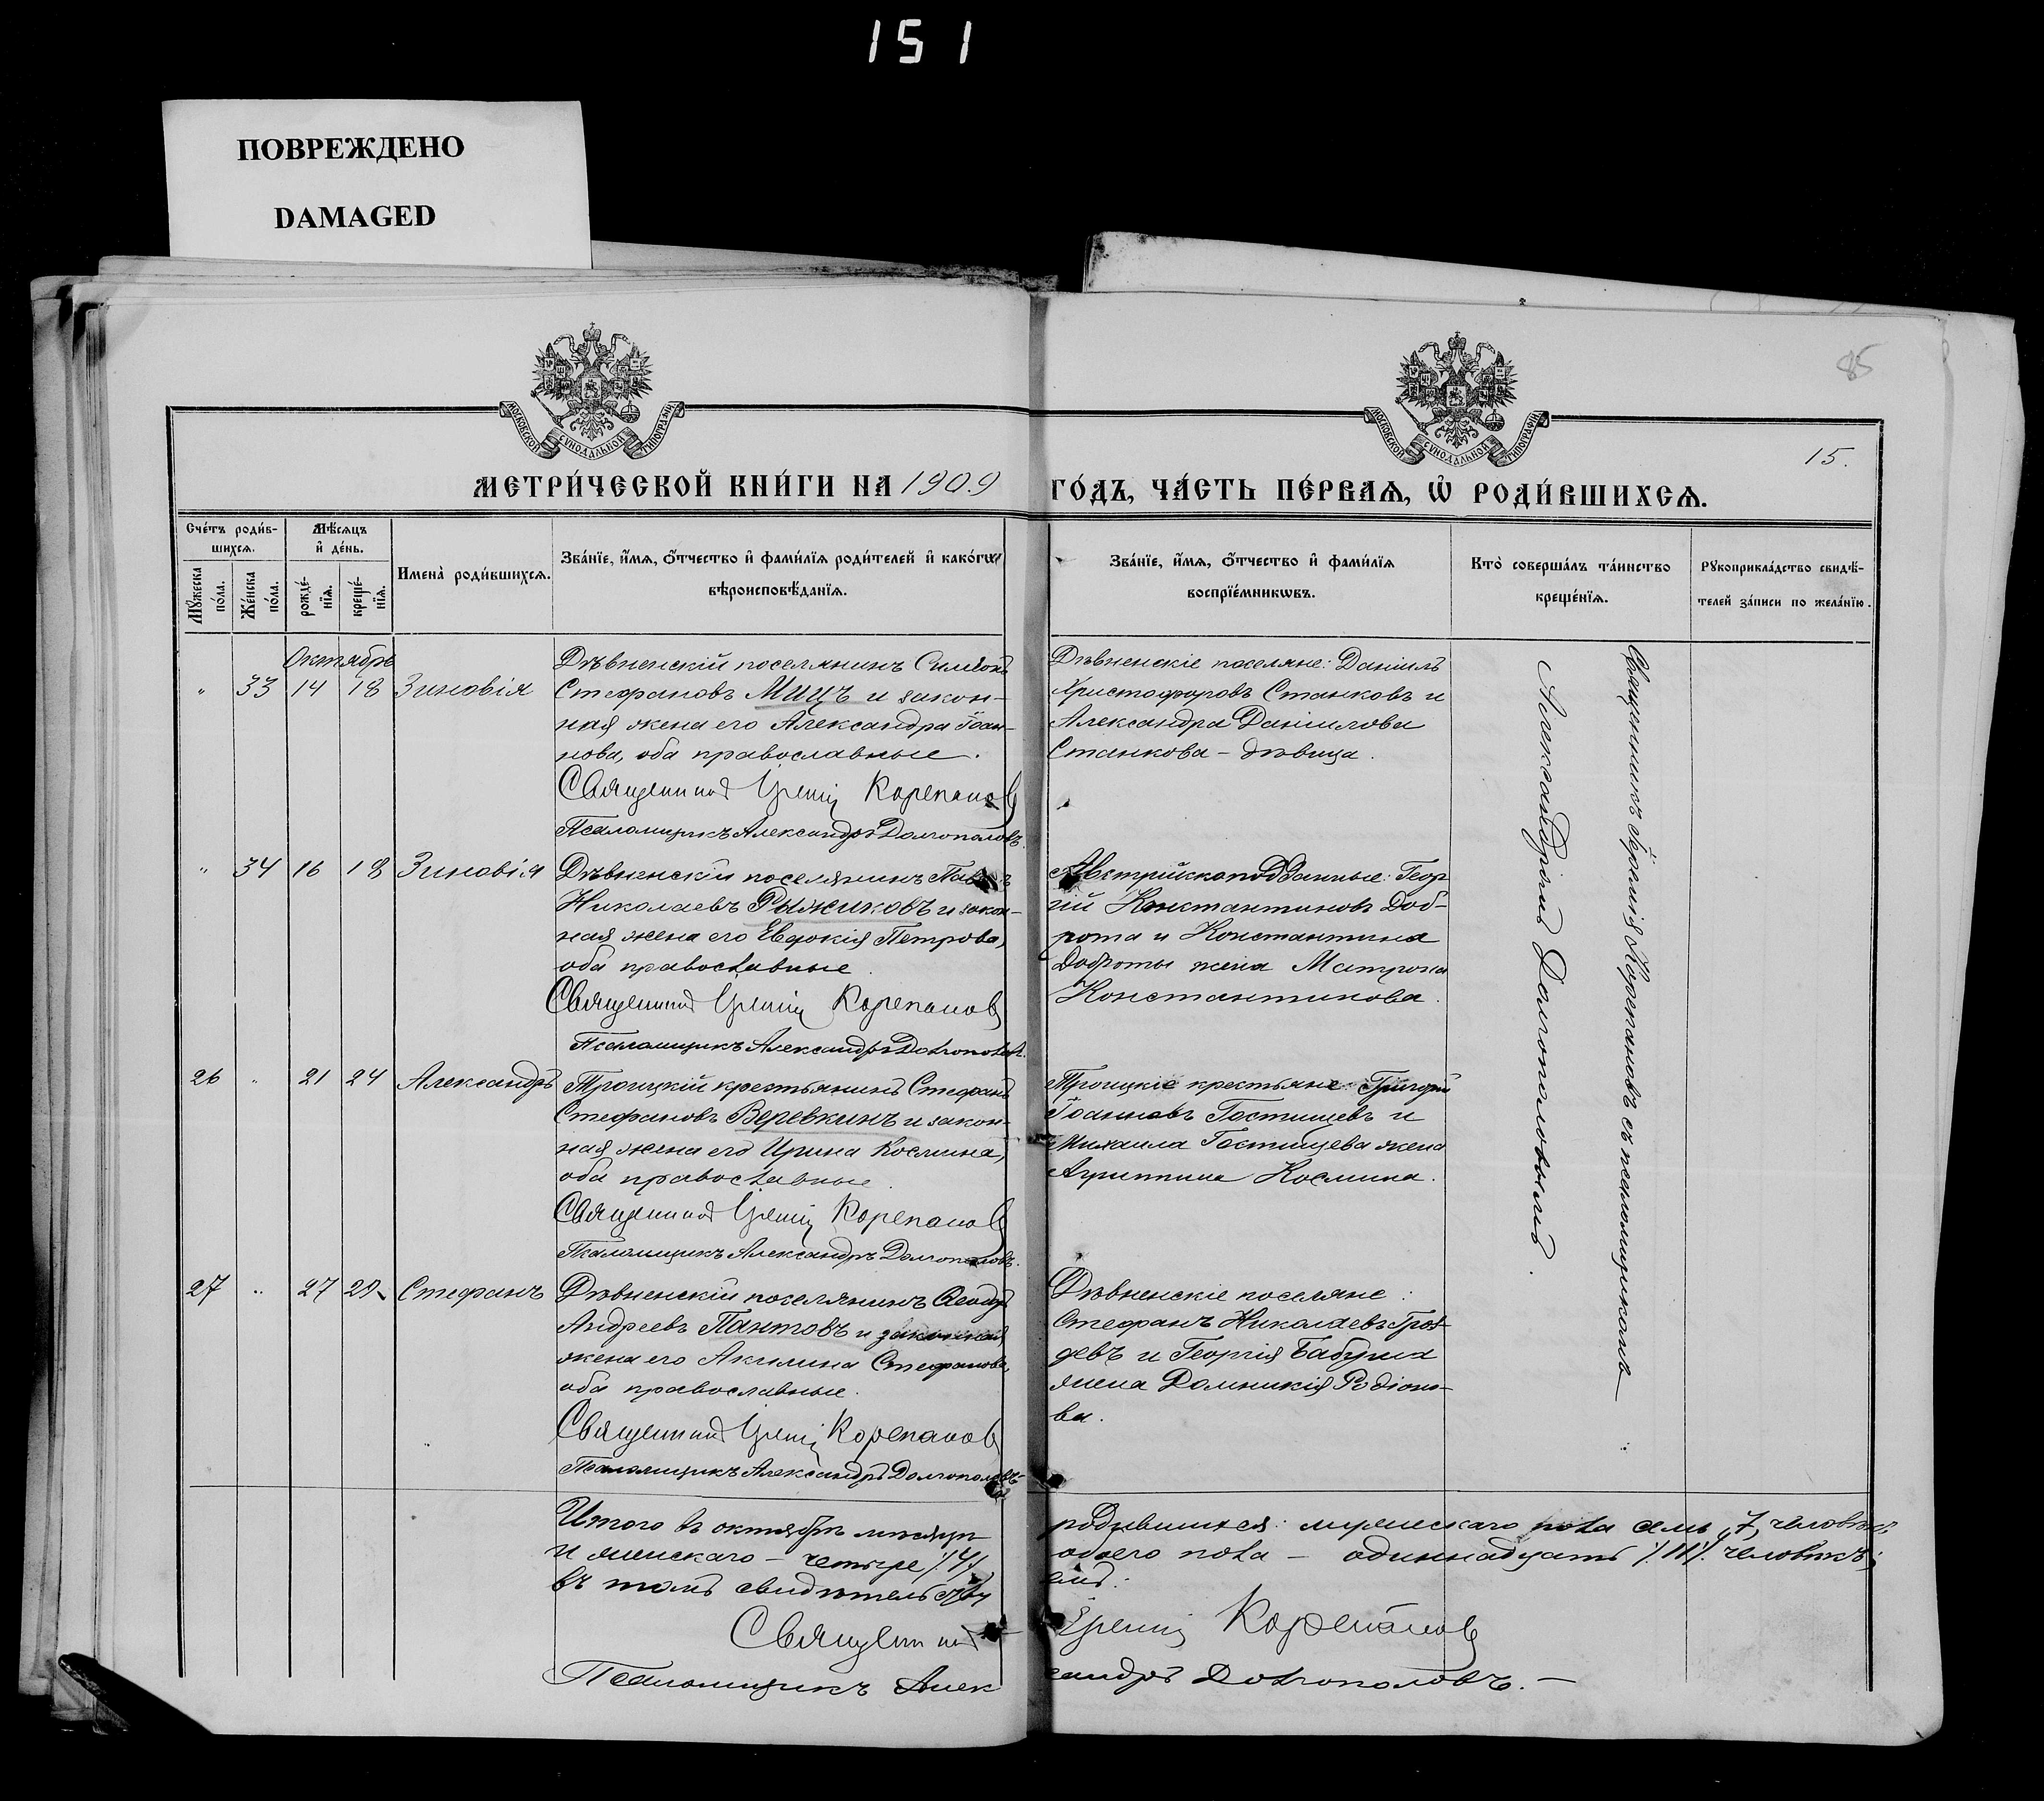 151
ПОВРЕЖДЕНО
DAMAGED
85
МОСКОВСКОЙ СѴНОДАЛЬНОЙ ТИПОГРАФІИ.
МОСКОВСКОЙ СѴНОДАЛЬНОЙ ТИПОГРАФІИ.
15.
МЕТРИ́ЧЕСКОЙ КНИ́ГИ НА 1909
ГО́ДЪ, ЧА́СТЬ ПЕ́РВАЯ, Ѡ҆ РОДИ́ВШИХСЯ.
Сче́тъ роди́в-
шихся.
Мѣ́сяцъ
и҆ де́нь.
Мꙋ́жеска
по́ла.
Же́нска
по́ла.
рожде́-
нїя.
креще́-
нїя.
Имена̀ роди́вшихся.
Зва́нїе, и҆́мя, ѻ҆́тчество и҆ фами́лїя роди́телей и҆ како́гѡ
вѣроисповѣ́данїя.
Зва́нїе, и҆́мя, ѻ҆́тчество и҆ фами́лїя
воспрїе́мникѡвъ.
Кто̀ соверша́лъ та́инство
креще́нїя.
Рꙋкоприкла́дство свидѣ́-
телей за́писи по жела́нїю.
Октябрь
" 33 14 18 Зиновія
Дѣвненскій поселянинъ Симеонъ
Стефановъ Мицъ и закон-
ная жена его Александра Іоан-
нова, оба православные.
Священникъ Іереміи Корепановъ
Псаломщикъ Александръ Долгополовъ.
Дѣвненскіе поселяне: Даніилъ
Христофоровъ Станковъ и
Александра Даніилова
Станкова - дѣвица.
" 34 16 18 Зиновія
Дѣвненскій поселянинъ Павелъ
Николаевъ Рыжиковъ и закон-
ная жена его Евдокія Петрова,
оба православные.
Священникъ Іереміи Корепановъ
Псаломщикъ Александръ Долгополовъ.
Австрійскоподданные: Геор-
гій Константиновъ Доб-
рота и Константина
Доброты жена Матрона
Константинова.
26 " 21 24 Александръ
Троицкій крестьянинъ Стефанъ
Стефановъ Веревкинъ и закон-
ная жена его Ирина Космина,
оба православные.
Священникъ Іереміи Корепановъ
Псаломщикъ Александръ Долгополовъ.
Троицкіе крестьяне: Григорій
Іоанновъ Гостищевъ и
Михаила Гостищева жена
Агриппина Космина.
27 " 27 29 Стефанъ
Дѣвненскій поселянинъ Ѳеодоръ
Андреевъ Пантовъ и законная
жена его Акилина Стефанова,
оба православные.
Священникъ Іереміи Корепановъ
Псаломщикъ Александръ Долгополовъ
Дѣвненскіе поселяне:
Стефанъ Николаевъ Гроз-
девъ и Георгія Бабула
жена Домникія Родіоно-
ва.
Священникъ Іеремія Корепановъ съ псаломщикомъ
Александромъ Долгополовымъ.
Итого въ октябрѣ мѣсяцѣ родившихся: мужескаго пола семь 7, человѣкъ
и женскаго - четыре /4/, обоего пола - одиннадцать /11/ человѣкъ;
въ томъ свидѣтельствуемъ:
Священникъ Іереміи Корепановъ
Псаломщикъ Александръ Долгополовъ. -